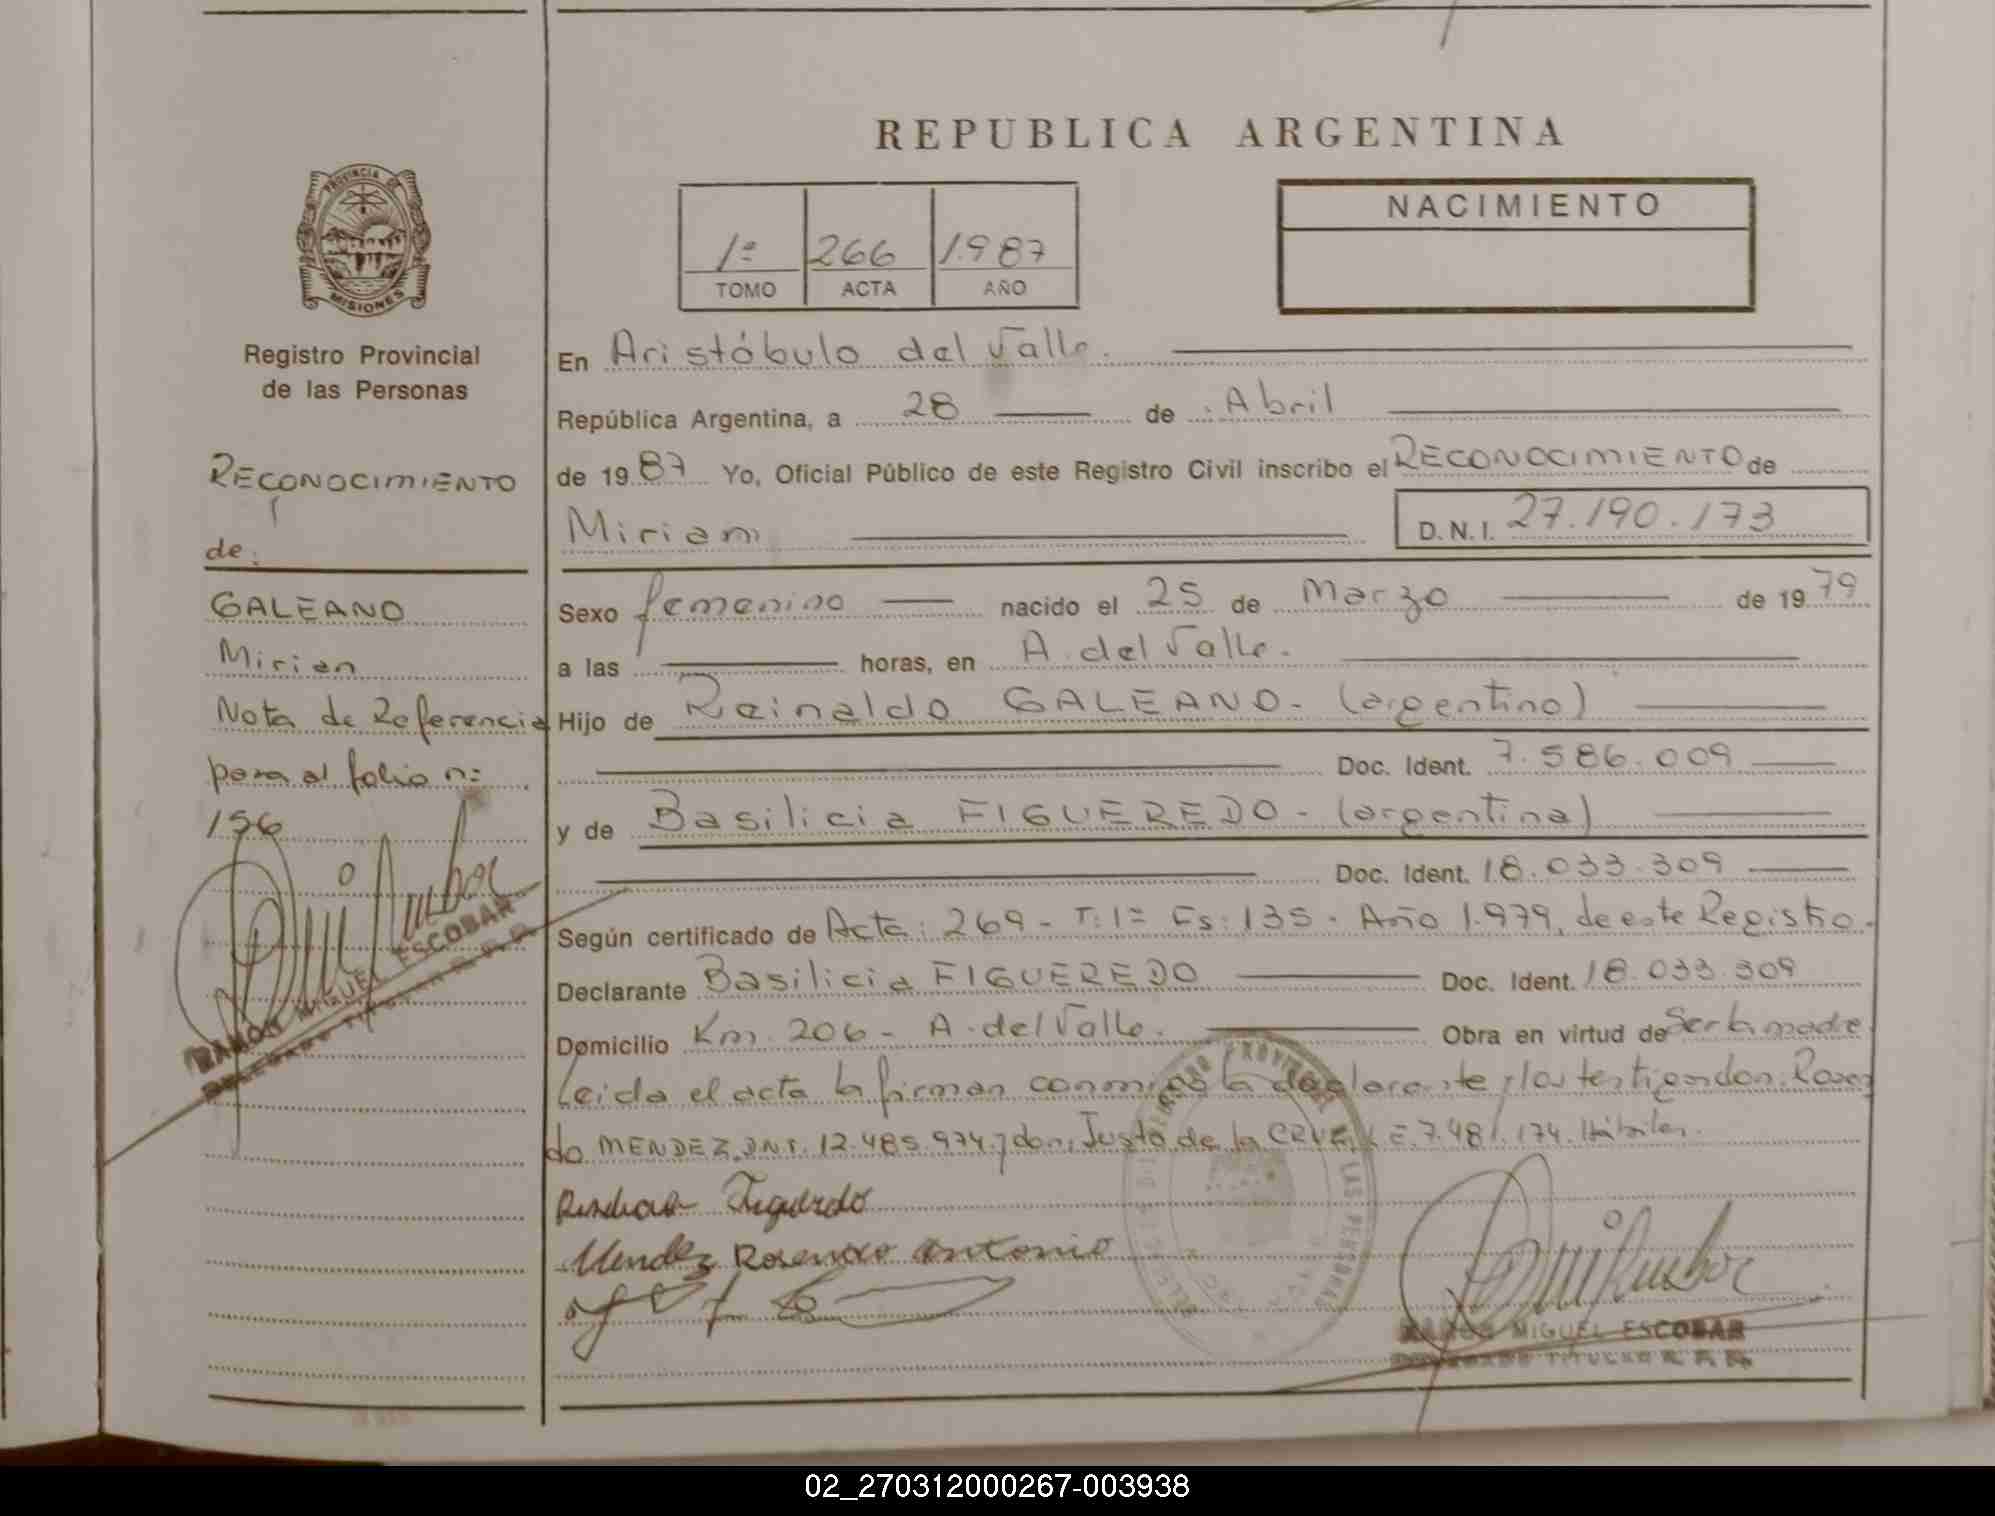 REPUBLICA ARGENTINA
PROVINCIA DE
MISIONES
Registro Provincial
de las Personas
RECONOCIMIENTO
de:
GALEANO
Mirian
Nota de Referencia
para al folio nº
156
RAMON MIGUEL ESCOBAR
DELEGADO TITULAR R. P. P.
1º 266 1.987
TOMO ACTA AÑO
NACIMIENTO
En Aristóbulo del Valle.
República Argentina, a 28 de Abril
de 1987 Yo, Oficial Público de este Registro Civil inscribo el RECONOCIMIENTO de
Miriam D.N.I. 27.190.173
Sexo femenino nacido el 25 de Marzo de 1979
a las horas, en A. del Valle.
Hijo de Reinaldo GALEANO - (argentino)
Doc. Ident. 7.586.009
y de Basilicia FIGUEREDO - (argentina)
Doc. Ident. 18.033.309
Según certificado de Acta: 269 - T: 1º Fs: 135 - Año 1.979, de este Registro.
Declarante Basilicia FIGUEREDO Doc. Ident. 18.033.309
Domicilio Km. 206 - A. del Valle. Obra en virtud de Ser la madre
Leida el acta la firman conmigo la declarante y los testigos don. Rosen
do MENDEZ, DNI. 12.485.974. y don, Justo de la CRUZ, L.E. 7.481.174. Hábiles.
Figueredo
Mendez Rosendo Antonio
MIGUEL ESCOBAR
DELEGADO TITULAR R. P. P.
02_270312000267-003938